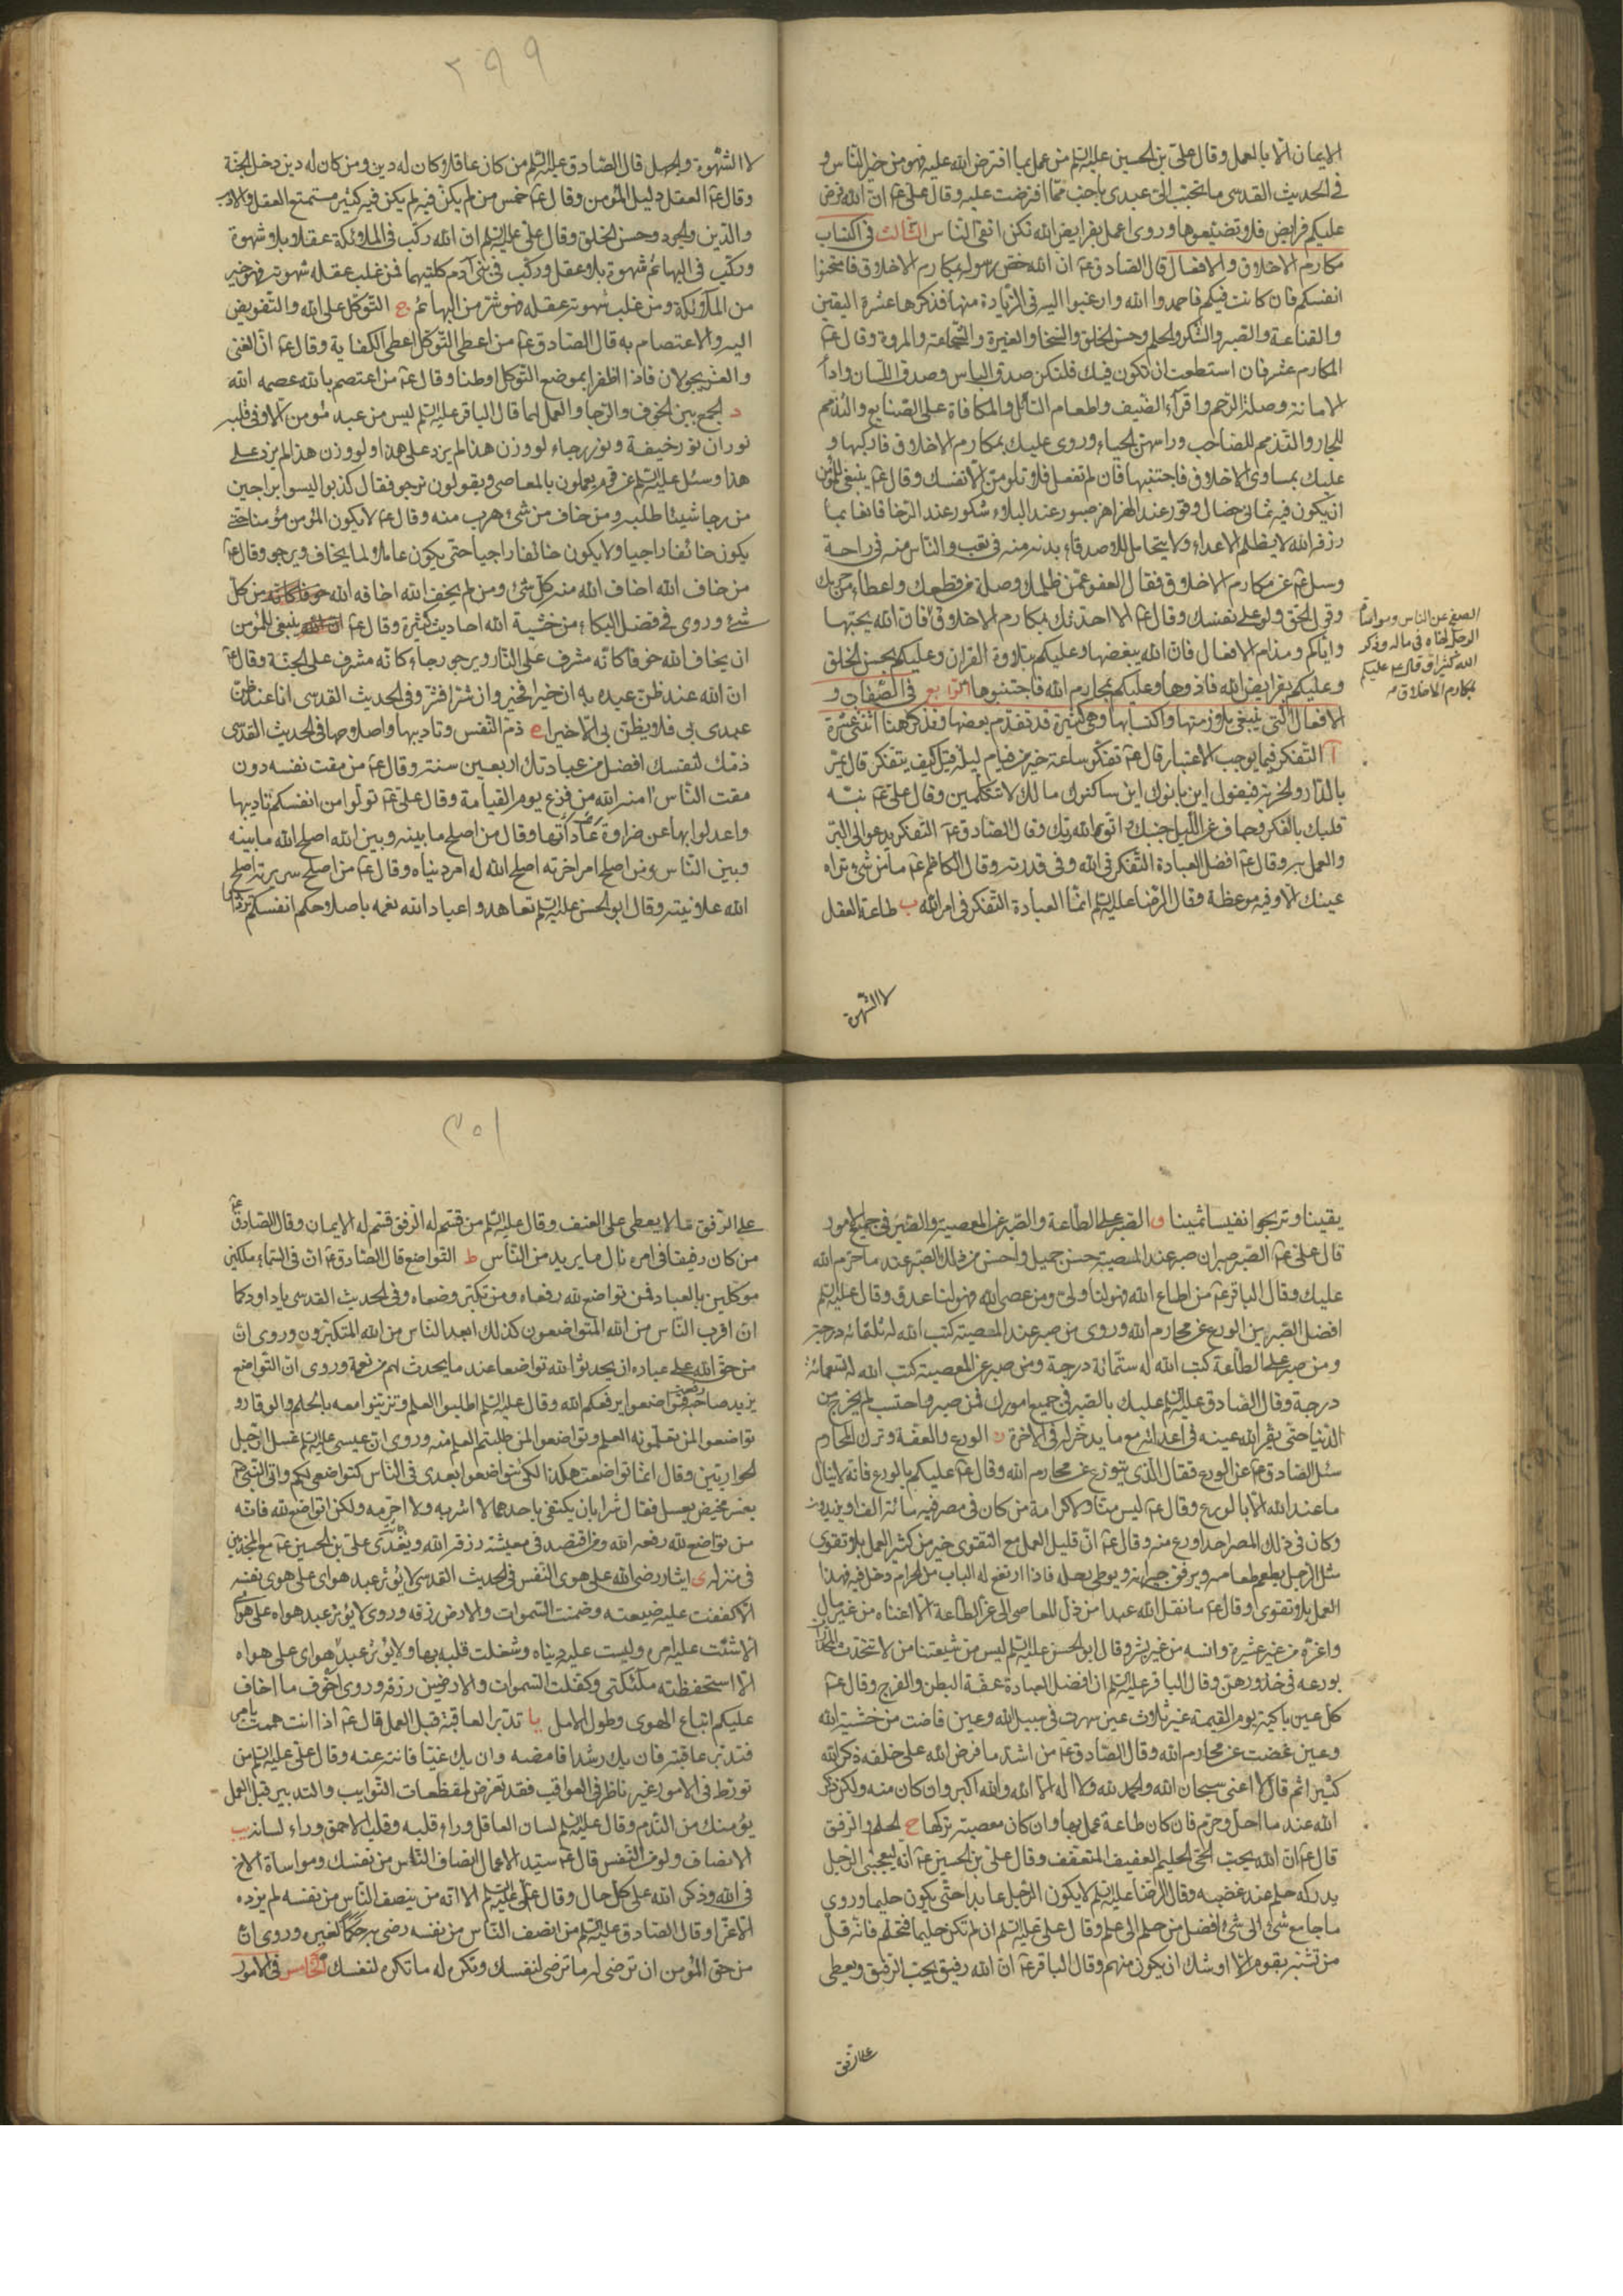 الايمان الا بالعمل وقال علي بن الحسين عليه السلم من عمل بما افترض الله عليه فهو من خير الناس و
في الحديث القدسي ما تحبب الي عبدي باحب مما افترضت عليه وقال علي ع ان الله فرض
عليكم فرايض فلا تضيعوها وروى اعمل بفرايض الله تكن اتقى الناس الثالث في اكتساب
مكارم الاخلاق والافعال قال الصادق ع ان الله خص رسوله بمكارم الاخلاق فامتحنوا
انفسكم فان كانت فيكم فاحمدوا الله وارغبوا اليه في الزيادة منها فذكرها عشرة اليقين
والقناعة والصبر والشكر والحلم وحسن الخلق والسخا والغيرة والشجاعة والمروة وقال ع
المكارم عشر فان استطعت ان تكون فيك فلتكن صدق الباس وصدق اللسان واداء
الامانة وصلة الرحم واقراء الضيف واطعام السائل والمكافاة على الصنايع والتذمم
للجار والتذمم للصاحب وراسهن الحياء وروى عليك بمكارم الاخلاق فاركبها و
عليك بمساوى الاخلاق فاجتنبها فان لم تفعل فلا تلومن الا نفسك وقال ع ينبغي للمؤمن
ان يكون فيه ثماني خصال وقور عند الهزاهز صبور عند البلاء شكور عند الرخا قانعا بما
رزقه الله لا يظلم الاعداء ولا يتحامل للاصدقاء بدنه منه في تعب والناس منه في راحة
وسئل ع عن مكارم الاخلاق فقال العفو عمن ظلمك وصلة من قطعك واعطاء من حرمك
وقول الحق ولو على نفسك وقال ع الا احدثك بمكارم الاخلاق فان الله يحبها
الصفح عن الناس ومواساة
الرجل اخاه في ماله وذكر
الله كثيرا وقال ع عليكم
بمكارم الاخلاق
واياكم ومذام الافعال فان الله يبغضها وعليكم بتلاوة القران وعليكم بحسن الخلق
وعليكم بفرايض الله فادوها وعليكم بمحارم الله فاجتنبوها الرابع في الصفات و
الافعال التي ينبغي ملازمتها واكتسابها وهي كثيرة قد تقدم بعضها ونذكر هنا اثنتي عشرة
آ التفكر فيما يوجب الاعتبار قال ع تفكر ساعة خير من قيام ليلة قيل كيف يتفكر قال يمر
بالدار والخربة فيقول اين بانوك اين ساكنوك مالك لا تتكلمين وقال علي ع نبه
قلبك بالتفكر وجاف عن الليل جنبك واتق الله ربك وقال الصادق ع التفكر يدعو الى البر
والعمل به وقال ع افضل العبادة التفكر في الله وفي قدرته وقال الكاظم ع ما من شئ تراه
عينك الا وفيه موعظة وقال الرضا عليه السلم انما العبادة التفكر في امر الله ب طاعة العقل
لا الشهوة
٢٩٩
لا الشهوة والجهل قال الصادق عليه السلم من كان عاقلا كان له دين ومن كان له دين دخل الجنة
وقال ع العقل دليل المؤمن وقال ع خمس من لم يكن فيه لم يكن فيه كثير مستمتع العقل والادب
والدين والجود وحسن الخلق وقال علي عليه السلم ان الله ركب في الملائكة عقلا بلا شهوة
وركب في البهائم شهوة بلا عقل وركب في بني آدم كلتيهما فمن غلب عقله شهوته فهو خير
من الملائكة ومن غلب شهوته عقله فهو شر من البهائم ج التوكل على الله والتفويض
اليه والاعتصام به قال الصادق ع من اعطى التوكل اعطي الكفاية وقال ع ان الغنى
والعز يجولان فاذا ظفرا بموضع التوكل اوطنا وقال ع من اعتصم بالله عصمه الله
د الجمع بين الخوف والرجا والعمل لما قال الباقر عليه السلم ليس من عبد مؤمن الا وفي قلبه
نوران نور خيفة ونور رجاء لو وزن هذا لم يزد على هذا ولو وزن هذا لم يزد على
هذا وسئل عليه السلم عن قوم يعملون بالمعاصي ويقولون نرجو فقال كذبوا ليسوا براجين
من رجا شيئا طلبه ومن خاف من شئ هرب منه وقال ع لا يكون المؤمن مؤمنا حتى
يكون خائفا راجيا ولا يكون خائفا راجيا حتى يكون عاملا لما يخاف ويرجو وقال ع
من خاف الله اخاف الله منه كل شئ ومن لم يخف الله اخافه الله من كل
شئ وروى في فضل البكاء من خشية الله احاديث كثيرة وقال ع ينبغي للمؤمن
ان يخاف الله خوفا كانه مشرف على النار ويرجو رجاء كانه مشرف على الجنة وقال ع
ان الله عند ظن عبده به ان خيرا فخير وان شرا فشر وفي الحديث القدسي انا عند ظن
عبدى بي فلا يظن بي الا خيرا ه ذم النفس وتاديبها واصلاحها في الحديث القدسي
ذمك لنفسك افضل من عبادتك اربعين سنة وقال ع من مقت نفسه دون
مقت الناس امنه الله من فزع يوم القيامة وقال علي ع تولوا من انفسكم تاديبها
واعدلوا بها عن ضراوة عاداتها وقال من اصلح ما بينه وبين الله اصلح الله ما بينه
وبين الناس ومن اصلح امر اخرته اصلح الله له امر دنياه وقال ع من اصلح سريرته اصلح
الله علانيته وقال ابو الحسن عليه السلم تعاهدوا عباد الله نعمه باصلاحكم انفسكم تزدادوا
يقينا وتربحوا نفيسا ثمينا و الصبر على الطاعة والصبر عن المعصية والصبر في جميع الامور
قال علي ع الصبر صبران صبر عند المصيبة حسن جميل واحسن من ذلك الصبر عند ما حرم الله
عليك وقال الباقر ع من اطاع الله فهو لنا ولي ومن عصى الله فهو لنا عدو وقال عليه السلم
افضل الصبر الورع عن محارم الله وروى من صبر عند المصيبة كتب الله له ثلثمائة درجة
ومن صبر على الطاعة كتب الله له ستمائة درجة ومن صبر عن المعصية كتب الله له تسعمائة
درجة وقال الصادق عليه السلم عليك بالصبر في جميع امورك فمن صبر واحتسب لم يخرج من
الدنيا حتى يقر الله عينه في اعدائه مع ما يدخر له في الاخرة ز الورع والعفة وترك المحارم
سئل الصادق ع عن الورع فقال الذى يتورع عن محارم الله وقال ع عليكم بالورع فانه لا ينال
ما عند الله الا بالورع وقال ع ليس منا ولا كرامة من كان في مصر فيه مائة الف او يزيدون
وكان في ذلك المصر احد اورع منه وقال ع ان قليل العمل مع التقوى خير من كثير العمل بلا تقوى
مثل الرجل يطعم طعامه ويرفق جيرانه ويوطى رحله فاذا ارتفع له الباب من الحرام دخل فيه فهذا
العمل بلا تقوى وقال ع ما نقل الله عبدا من ذل المعاصي الى عز الطاعة الا اغناه من غير مال
واعزه من غير عشيرة وانسه من غير بشر وقال ابو الحسن عليه السلم ليس من شيعتنا من لا تتحدث المخدرات
بورعه في خدورهن وقال الباقر عليه السلم ان افضل العبادة عفة البطن والفرج وقال ع
كل عين باكية يوم القيمة غير ثلاث عين سهرت في سبيل الله وعين فاضت من خشية الله
وعين غضت عن محارم الله وقال الصادق ع من اشد ما فرض الله على خلقه ذكر الله
كثيرا ثم قال لا اعني سبحان الله والحمد لله ولا اله الا الله والله اكبر وان كان منه ولكن ذكر
الله عند ما احل وحرم فان كان طاعة عمل بها وان كان معصية تركها ح الحلم والرفق
قال ع ان الله يحب الحيي الحليم العفيف المتعفف وقال علي بن الحسين ع انه ليعجبني الرجل
يدركه حلمه عند غضبه وقال الرضا عليه السلم لا يكون الرجل عابدا حتى يكون حليما وروى
ما جامع شئ الى شئ افضل من حلم الى علم وقال علي عليه السلم ان لم تكن حليما فتحلم فانه قل
من تشبه بقوم الا اوشك ان يكون منهم وقال الباقر ع ان الله رفيق يحب الرفيق ويعطي
على الرفق
٣٠١
على الرفق ما لا يعطي على العنف وقال عليه السلم من قسم له الرفق قسم له الايمان وقال الصادق ع
من كان رفيقا في امره نال ما يريد من الناس ط التواضع قال الصادق ع ان في السماء ملكين
موكلين بالعباد فمن تواضع لله رفعاه ومن تكبر وضعاه وفي الحديث القدسي يا داود كما
ان اقرب الناس من الله المتواضعون كذلك ابعد الناس من الله المتكبرون وروى ان
من حق الله على عباده ان يحدثوا لله تواضعا عند ما يحدث لهم من نعمة وروى ان التواضع
يزيد صاحبه رفعة فتواضعوا يرفعكم الله وقال عليه السلم اطلبوا العلم وتزينوا معه بالحلم والوقار و
تواضعوا لمن تعلمونه العلم وتواضعوا لمن طلبتم العلم منه وروى ان عيسى عليه السلم غسل ارجل
الحواريين وقال انما تواضعت هكذا لكي تتواضعوا بعدى في الناس كتواضعي لكم واتى النبي ص
بعس مخيض بعسل فقال شرابان يكتفي باحدهما لا اشربه ولا احرمه ولكن اتواضع لله فانه
من تواضع لله رفعه الله ومن اقتصد في معيشته رزقه الله وتغدى علي بن الحسين ع مع المجذمين
في منزله ى ايثار رضى الله على هوى النفس في الحديث القدسي لا يؤثر عبد هواى على هوى نفسه
الا كففت عليه ضيعته وضمنت السموات والارض رزقه وروى لا يؤثر عبد هواه على هواى
الا شتت عليه امره ولبست عليه دنياه وشغلت قلبه بها ولا يؤثر عبد هواى على هواه
الا استحفظته ملئكتي وكفلت السموات والارضين رزقه وروى اخوف ما اخاف
عليكم اتباع الهوى وطول الامل يا تدبر العاقبة قبل العمل قال ع اذا انت هممت بامر
فتدبر عاقبته فان يك رشدا فامضه وان يك غيا فانته عنه وقال علي عليه السلم من
تورط في الامور غير ناظر في العواقب فقد تعرض لمفظعات النوايب والتدبير قبل العمل
يؤمنك من الندم وقال عليه السلم لسان العاقل وراء قلبه وقلب الاحمق وراء لسانه يب
الانصاف ولو من النفس قال ع سيد الاعمال انصاف الناس من نفسك ومواساة الاخ
في الله وذكر الله على كل حال وقال علي عليه السلم الا انه من ينصف الناس من نفسه لم يزده
الا عزا وقال الصادق عليه السلم من انصف الناس من نفسه رضي به حكما لغيره وروى ان
من حق المؤمن ان ترضى له ما ترضى لنفسك وتكره له ما تكره لنفسك الخامس في الامور